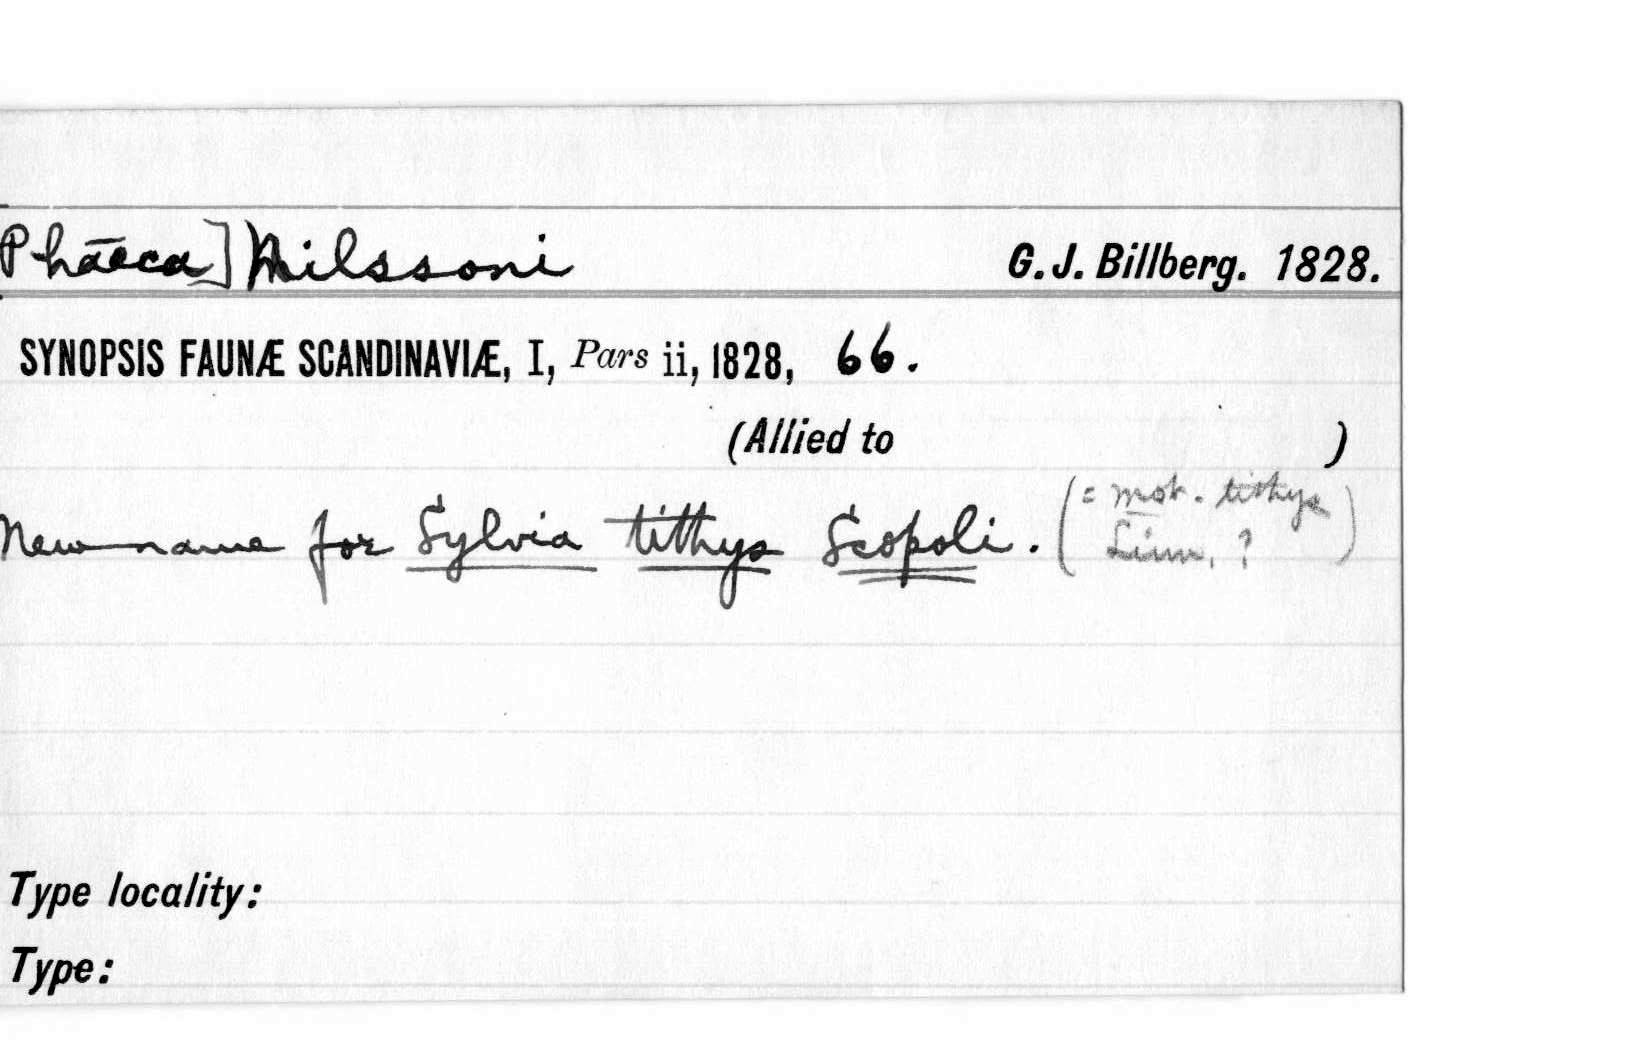 Phæca] Nilssoni G. J. Billberg. 1828.
SYNOPSIS FAUNÆ SCANDINAVIÆ, I, Pars ii, 1828, 66.
(Allied to )
New name for Sylvia tithys Scopoli. (= Mot. tithys
Linn. ?)
Type locality:
Type: